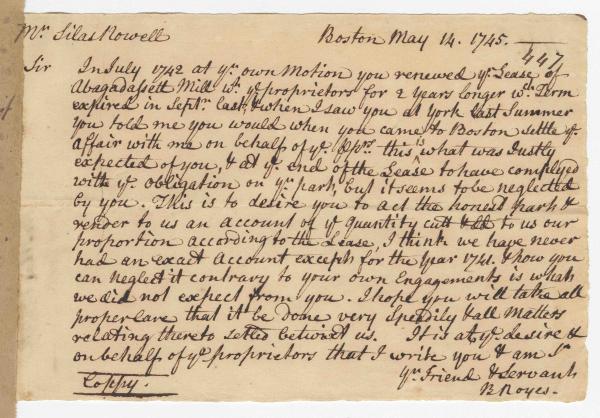 Mr. Silas Nowell Boston May 14. 1745.
447
Sir In July 1742 at yr. own Motion you renewed ye. Lease of
Abagadassett Mill wth. ye proprietors for 2 years longer wch. Term
expired in Septr. last, & when I saw you at York last Summer
you told me you would when you came to Boston settle ye
affair with me on behalf of ye. this is what was Justly
expected of you, & at ye. end of the Lease to have complyed
with ye. obligation on yr. part, but it seems to be neglected
by you. This is to desire you to act the honest part &
render to us an account of ye quantity cutt & to us our
proportion according to the Lease, I think we have never
had an exact Account except for the Year 1741. & how you
can neglect it contrary to your own Engagements is what
we did not expect from you. I hope you will take all
proper Care that it be done very Speedily & all Matters
relating thereto settled betwixt us. It is at ye. desire &
on behalf of ye. proprietors that I write you & am Sr.
yr. Friend & Servant
Coppy. B Noyes.